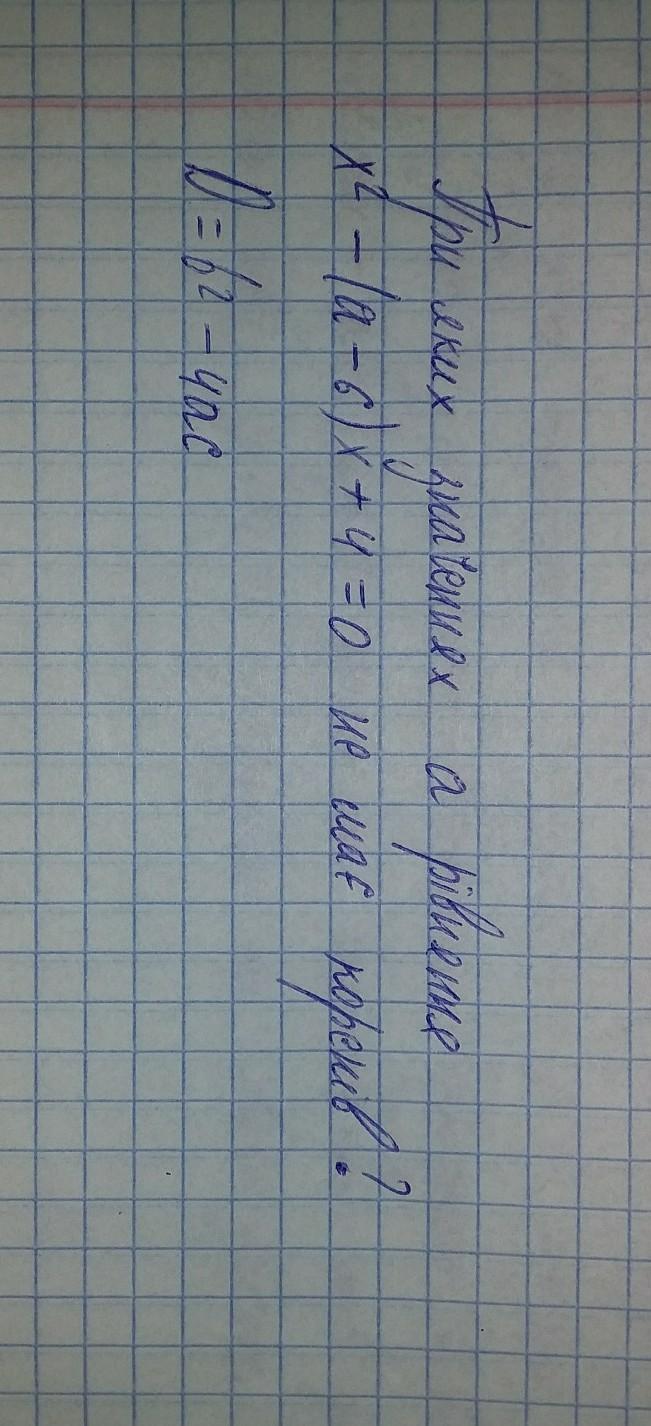 При яких значеннях a рівняння
x² - (a - 6)x + 4 = 0 не має коренів?
D = b² - 4ac